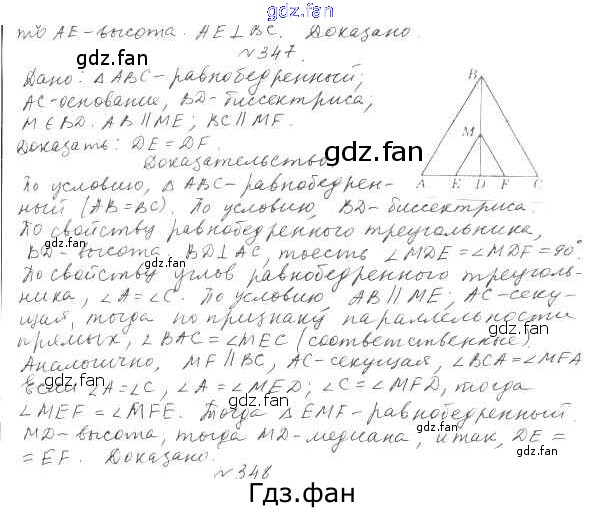 gdz.fan
то AE - высота. AE ⊥ BC. Доказано.
gdz.fan gdz.fan
№347.
Дано: △ABC - равнобедренный;
AC - основание, BD - биссектриса;
M ∈ BD. AB ∥ ME; BC ∥ MF.
Доказать: DE = DF.
gdz.fan
Доказательство
B
M
A E D F C
По условию, △ABC - равнобедрен-
ный (AB = BC). По условию, BD - биссектриса.
По свойству равнобедренного треугольника,
BD - высота BD ⊥ AC, то есть ∠MDE = ∠MDF = 90°.
По свойству углов равнобедренного треуголь-
ника, ∠A = ∠C. По условию, AB ∥ ME; AC - секу-
щая, тогда по признаку параллельности
прямых, ∠BAC = ∠MEC (соответственные).
Аналогично, MF ∥ BC, AC - секущая, ∠BCA = ∠MFA
Если ∠A = ∠C, ∠A = ∠MED; ∠C = ∠MFD, тогда
∠MEF = ∠MFE. Тогда △EMF - равнобедренный.
MD - высота, тогда MD - медиана, итак, DE =
= EF. Доказано.
gdz.fan gdz.fan
№348
Гдз.фан